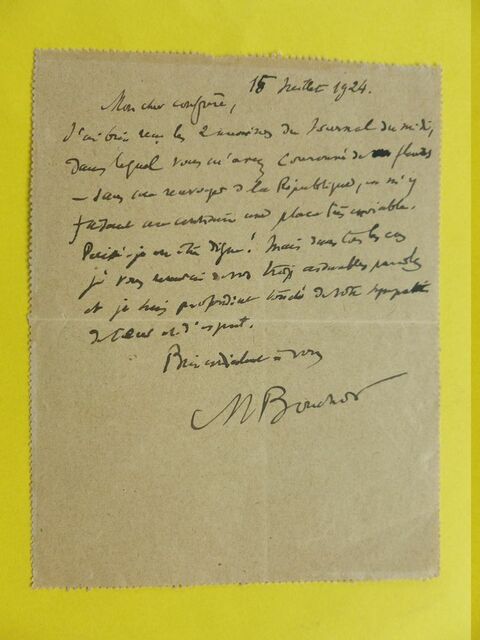 15 Juillet 1924.
Mon cher confrère,
J'ai bien reçu les 2 numéros du Journal du midi,
dans lequel vous m'avez couronné de fleurs
— sans me renvoyer de la République, en m'y
faisant au contraire une place très enviable.
Puissé-je en être digne! Mais dans tous les cas
je vous remercie de vos trop aimables paroles
et je suis profondément touché de votre sympathie
de cœur et d'esprit.
Bien cordialement à vous
M Bouchor